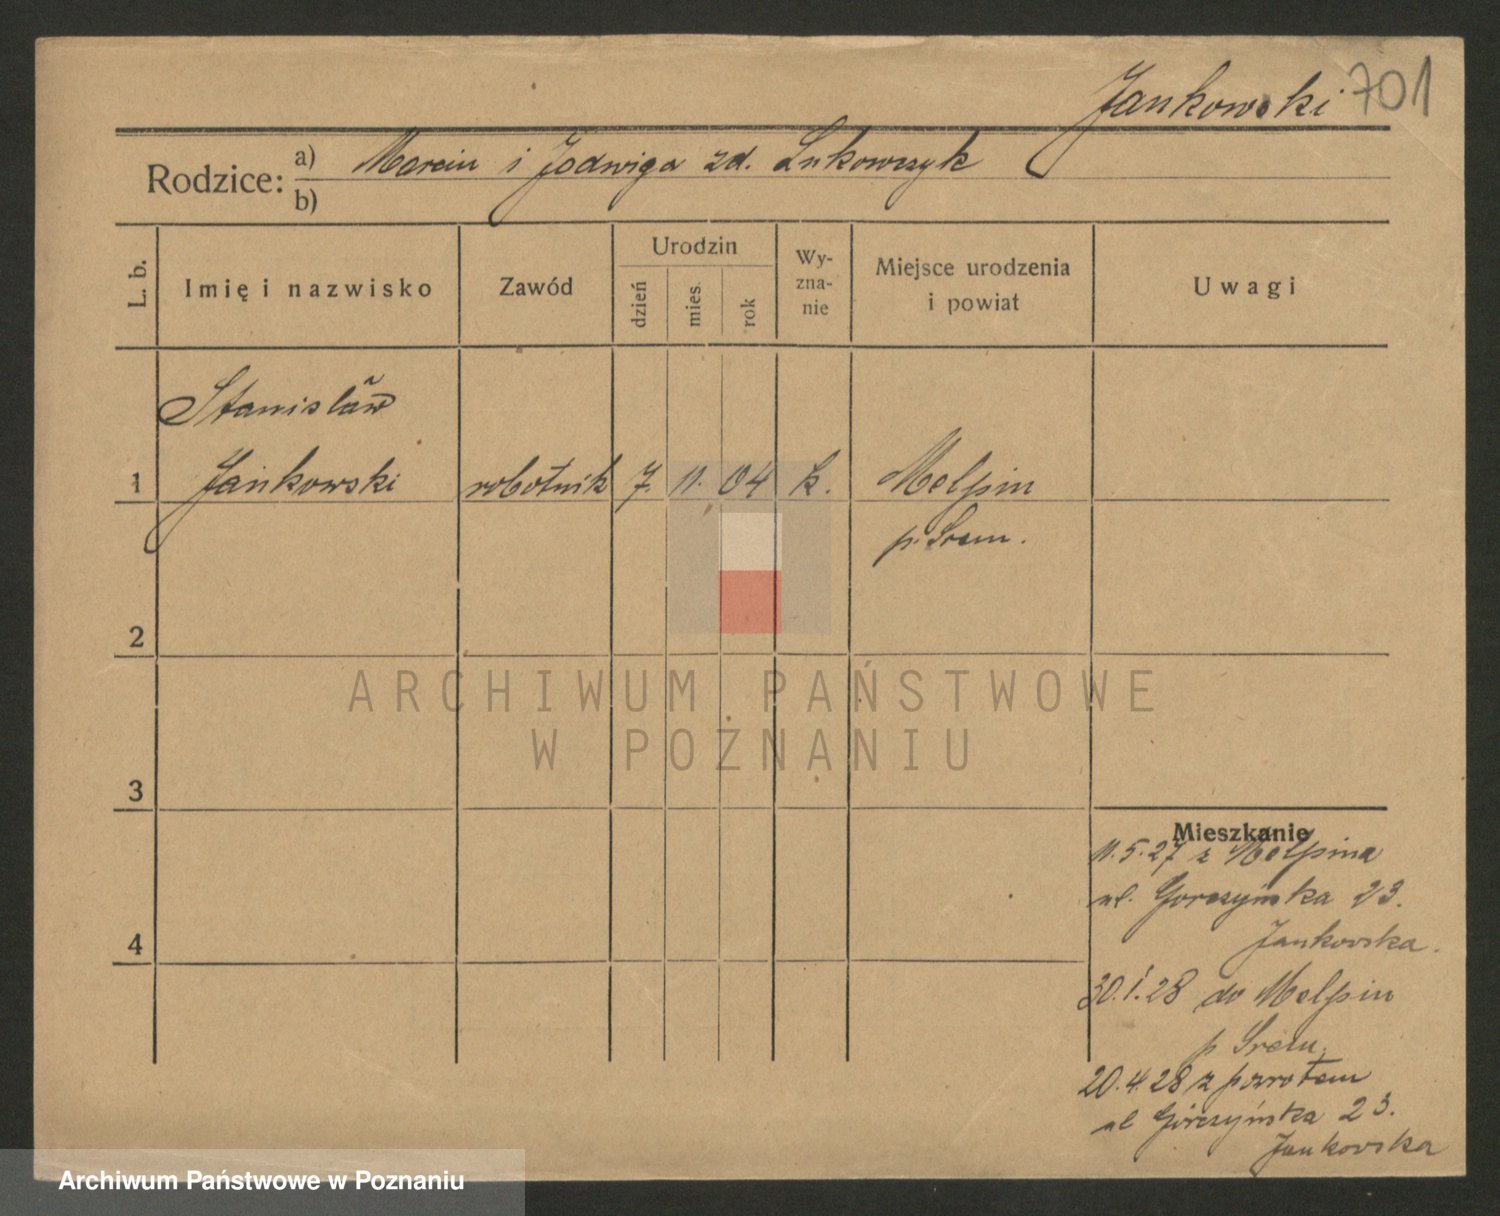 Jankowski 701
Rodzice: a) Marcin i Jadwiga zd. Lukowczyk
b)
L. b.
Imię i nazwisko
Zawód
Urodzin
dzień
mies.
rok
Wy-
zna-
nie
Miejsce urodzenia
i powiat
Uwagi
Stanisław
1 Jankowski robotnik 7. 11. 04 k. Mełpin
p. Śrem.
2
ARCHIWUM PAŃSTWOWE
W POZNANIU
3
Mieszkanie
11.5.27 z Mełpina
ul. Gorczyńska 23.
Jankovska.
4
30.1.28 do Mełpin
p Śrem.
20.4.28 z powrotem
ul Górczyńska 23.
Jankovska
Archiwum Państwowe w Poznaniu